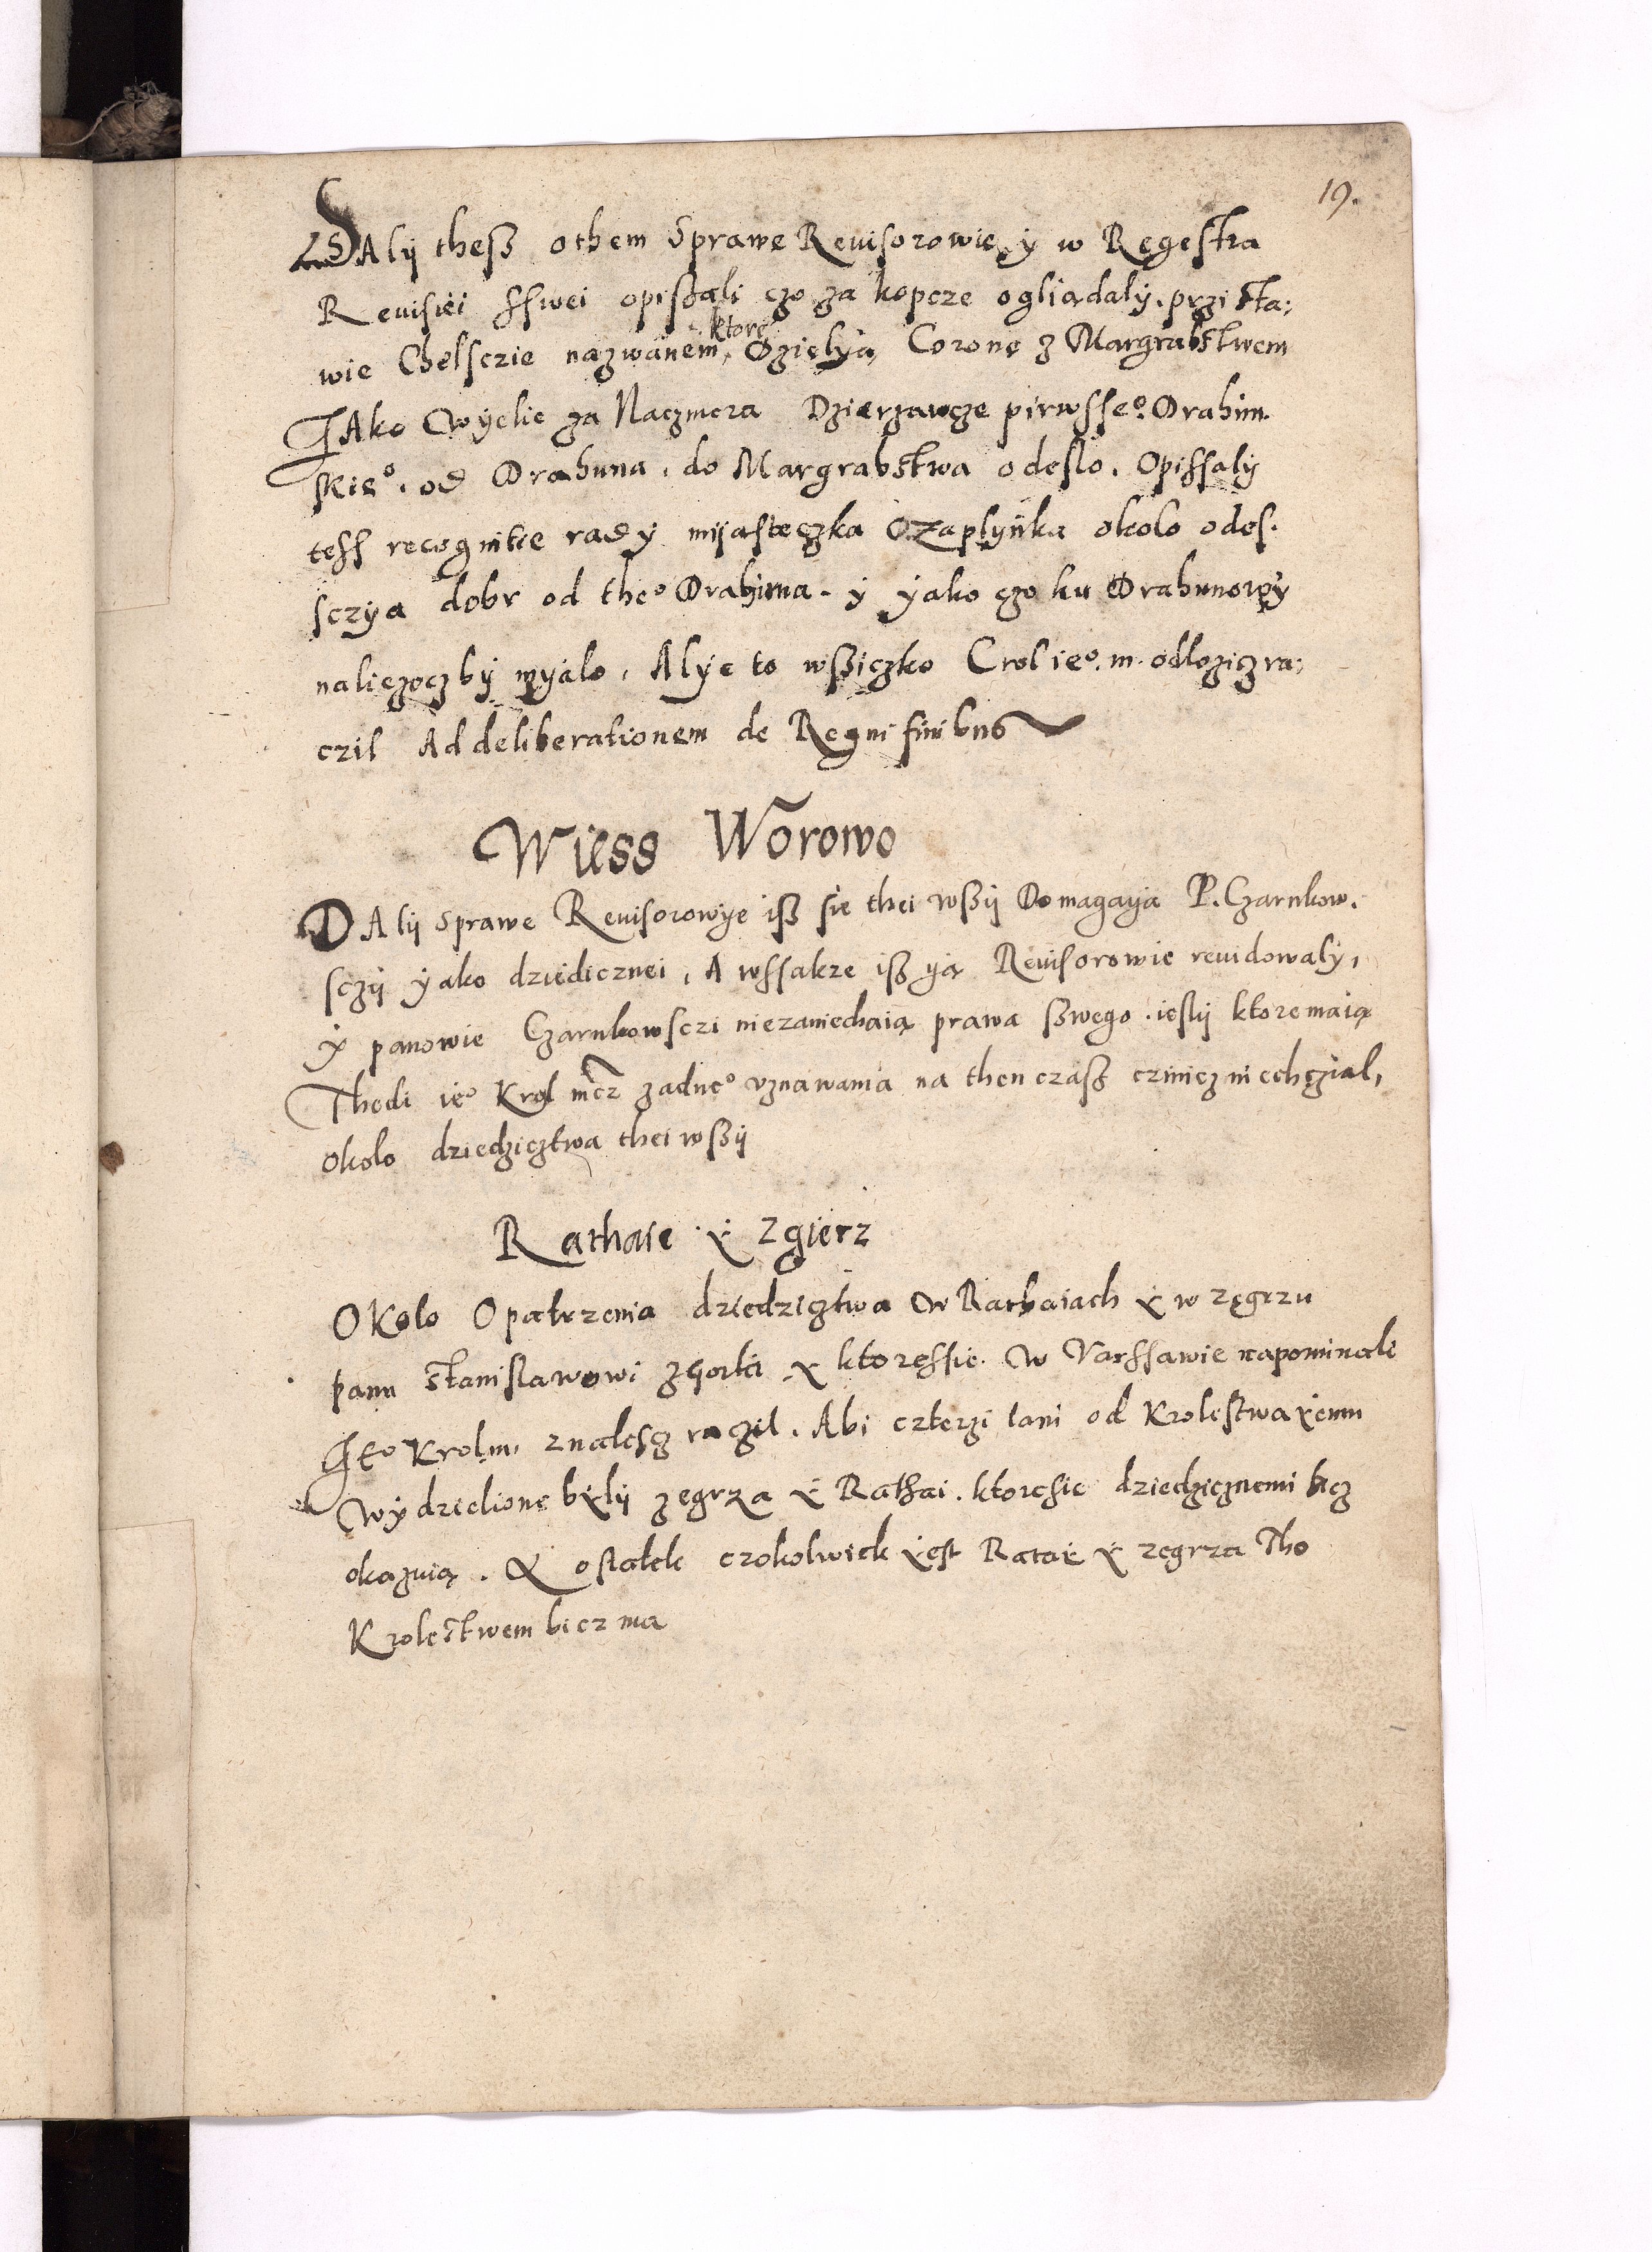 19.
DAlij theß othem Sprawe Reuisorowie y w Regestra
Reuisiei sswei opißali czo za kopcze ogliadaly. przi sta:
ktore
wie Chelsczie nazwanem, Dzielya, Corone z Margrabstwem
JAko Wyelie za Naczmera Dzierzawcze pirwsseº. Drahim
skieº. od Drahima. do Margrabstwa odeslo. Opissaly
tess recognitie rady mijasteczka Czaplynka okolo odes.
sczya dobr od theº Drahima. y yako czo ku Drahimowy
naliezecz by myalo, Alye to wßiczko Crol ieº. m. odlozicz ra:
czil Ad deliberationem de Regni finibus
Wiess Worowo
DAlij sprawe Reuisorowye iß sie thei wßij Domagaya P. Czarnkow.
sczij yako dziedicznei, A wssakze iß yą Reuisorowie reuidowaly,
y panowie Czarnkowsczi niezaniechaią prawa ßwego. ieslij ktore maią
Thedi ieº Krol mcz zadneº vznawania na then czaß czinicz niechczial,
okolo dziedzicztwa thei wßij
Rathaie y Zgierz
Okolo Opatrzenia dziedzicztwa w Rathaiach y w zegrzu
panu stanislawowi zgorki y ktoressie. w Varssawie napominali
Jeº Krol m. znalescz raczil. Abi czterzi lani od Krolestwa yemu
wydzielione bylij zegrza y Rathai. ktoresie dziedzicznemi bicz
okazuią. A ostatek czokolwiek yest Ratai y zegrza Tho
Krolestwem bicz ma